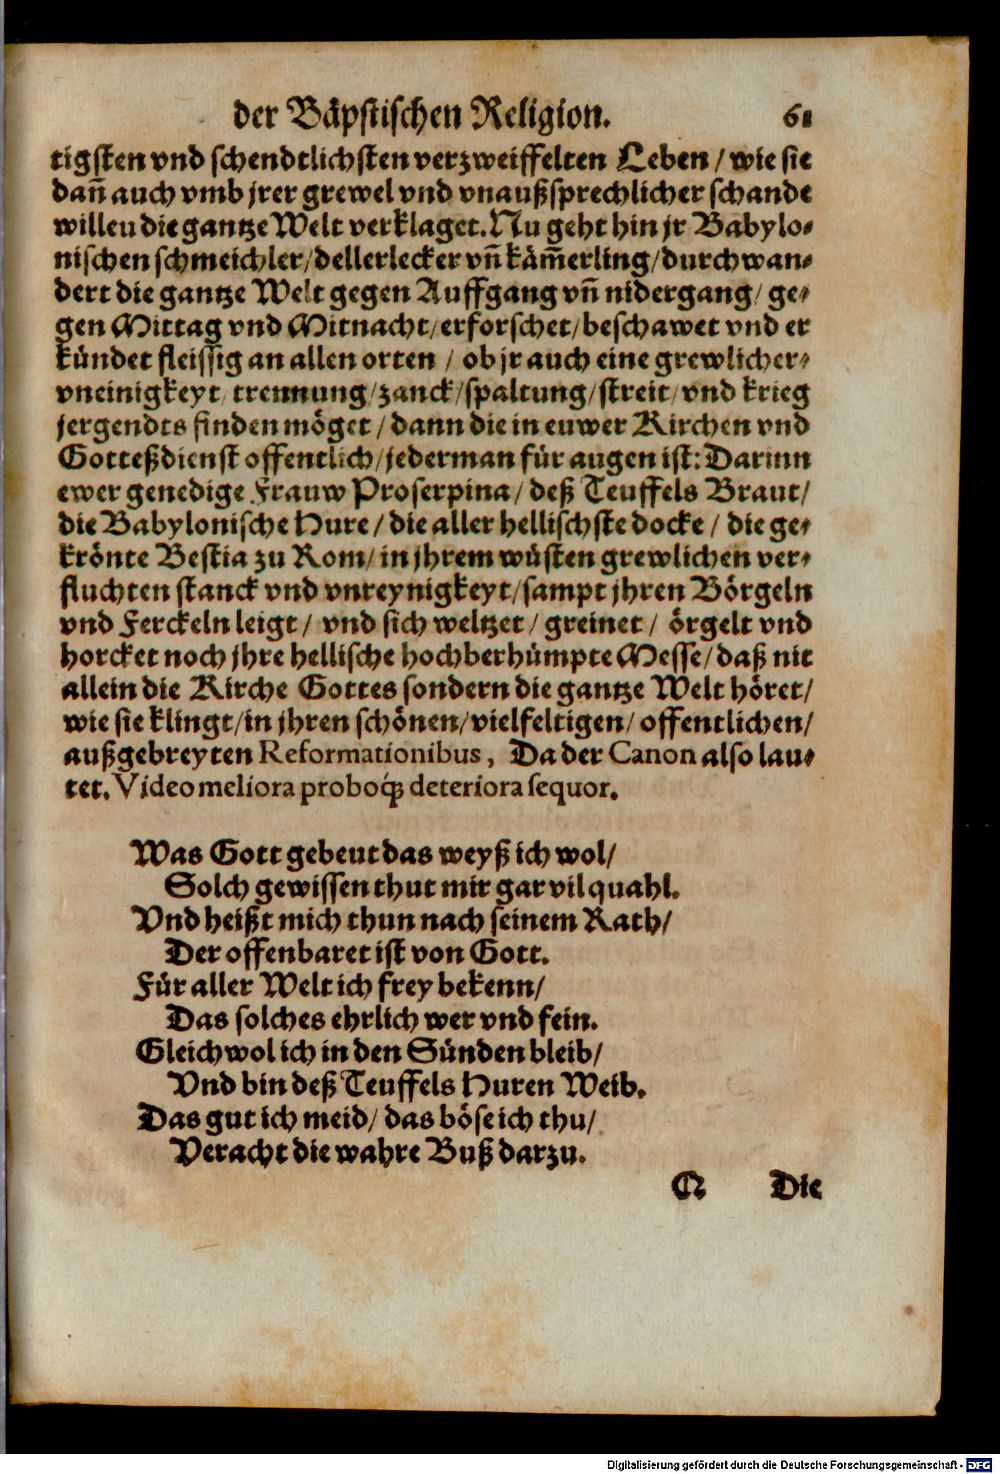 der Bäpstischen Religion. 61
tigsten vnd schendtlichsten verzweiffelten Leben / wie sie
dañ auch vmb jrer grewel vnd vnaußsprechlicher schande
willen die gantze Welt verklaget. Nu geht hin jr Babylo-
nischen schmeichler / dellerlecker vñ käm̃erling / durchwan-
dert die gantze Welt gegen Auffgang vñ nidergang / ge-
gen Mittag vnd Mitnacht / erforschet / beschawet vnd er
kündet fleissig an allen orten / ob jr auch eine grewlicher-
vneinigkeyt / trennung / zanck / spaltung / streit / vnd krieg
jergendts finden möget / dann die in euwer Kirchen vnd
Gotteßdienst offentlich / jederman für augen ist: Darinn
ewer genedige Frauw Proserpina / deß Teuffels Braut /
die Babylonische Hure / die aller hellischste docke / die ge-
krönte Bestia zu Rom / in jhrem wüsten grewlichen ver-
fluchten stanck vnd vnreynigkeyt / sampt jhren Börgeln
vnd Ferckeln leigt / vnd sich weltzet / greinet / örgelt vnd
horcket noch jhre hellische hochberhümpte Messe / daß nit
allein die Kirche Gottes sondern die gantze Welt höret /
wie sie klingt / in jhren schönen / vielfeltigen / offentlichen /
außgebreyten Reformationibus, Da der Canon also lau-
tet. Video meliora proboq́; deteriora sequor.
Was Gott gebeut das weyß ich wol /
Solch gewissen thut mir gar vil quahl.
Vnd heißt mich thun nach seinem Rath /
Der offenbaret ist von Gott.
Für aller Welt ich frey bekenn /
Das solches ehrlich wer vnd fein.
Gleichwol ich in den Sünden bleib /
Vnd bin deß Teuffels Huren Weib.
Das gut ich meid / das böse ich thu /
Veracht die wahre Buß darzu.
Q Die
Digitalisierung gefördert durch die Deutsche Forschungsgemeinschaft - DFG